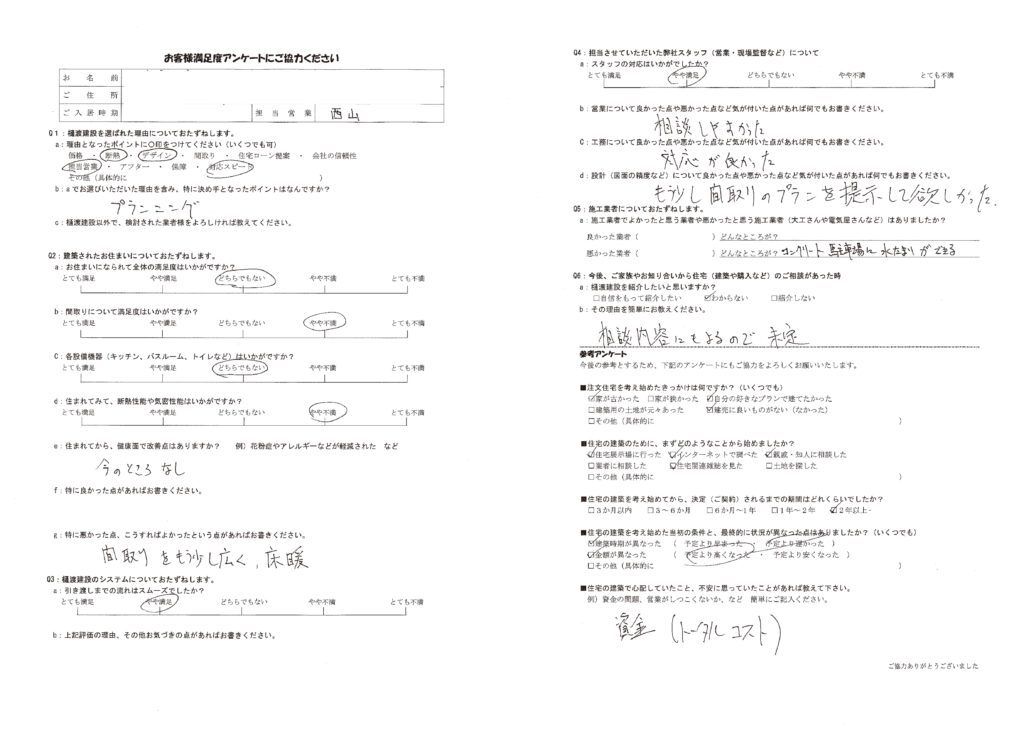 お客様満足度アンケートにご協力ください
お名前
ご住所
ご入居時期　担当営業　西山
Q1：樋渡建設を選ばれた理由についておたずねします。
a：理由となったポイントに〇印をつけてください（いくつでも可）
価格 ・ 断熱 ・ デザイン ・ 間取り ・ 住宅ローン提案 ・ 会社の信頼性
担当営業 ・ アフター ・ 保障 ・ 対応スピード
その他（具体的に　）
b：aでお選びいただいた理由を含み、特に決め手となったポイントはなんですか？
プランニング
c：樋渡建設以外で、検討された業者様をよろしければ教えてください。
Q2：建築されたお住まいについておたずねします。
a：お住まいになられて全体の満足度はいかがですか？
とても満足　やや満足　どちらでもない　やや不満　とても不満
b：間取りについて満足度はいかがですか？
とても満足　やや満足　どちらでもない　やや不満　とても不満
C：各設備機器（キッチン、バスルーム、トイレなど）はいかがですか？
とても満足　やや満足　どちらでもない　やや不満　とても不満
d：住まれてみて、断熱性能や気密性能はいかがですか？
とても満足　やや満足　どちらでもない　やや不満　とても不満
e：住まれてから、健康面で改善点はありますか？　例）花粉症やアレルギーなどが軽減された　など
今のところ なし
f：特に良かった点があればお書きください。
g：特に悪かった点、こうすればよかったという点があればお書きください。
間取りをもう少し広く、床暖
Q3：樋渡建設のシステムについておたずねします。
a：引き渡しまでの流れはスムーズでしたか？
とても満足　やや満足　どちらでもない　やや不満　とても不満
b：上記評価の理由、その他お気づきの点があればお書きください。
Q4：担当させていただいた弊社スタッフ（営業・現場監督など）について
a：スタッフの対応はいかがでしたか？
とても満足　やや満足　どちらでもない　やや不満　とても不満
b：営業について良かった点や悪かった点など気が付いた点があれば何でもお書きください。
相談しやすかった
C：工務について良かった点や悪かった点など気が付いた点があれば何でもお書きください。
対応が良かった
d：設計（図面の精度など）について良かった点や悪かった点など気が付いた点があれば何でもお書きください。
もう少し間取りのプランを提示して欲しかった.
Q5：施工業者についておたずねします。
a：施工業者でよかったと思う業者や悪かったと思う施工業者（大工さんや電気屋さんなど）はありましたか？
良かった業者（　）どんなところが？
悪かった業者（　）どんなところが？ コンクリート 駐車場に水たまりができる
Q6：今後、ご家族やお知り合いから住宅（建築や購入など）のご相談があった時
a：樋渡建設を紹介したいと思いますか？
□自信をもって紹介したい　☑わからない　□紹介しない
b：その理由を簡単にお教えください。
相談内容にもよるので 未定
参考アンケート
今後の参考とするため、下記のアンケートにもご協力をよろしくお願いいたします。
■注文住宅を考え始めたきっかけは何ですか？（いくつでも）
☑家が古かった　□家が狭かった　☑自分の好きなプランで建てたかった
□建築用の土地が元々あった　☑建売に良いものがない（なかった）
□その他（具体的に　）
■住宅の建築のために、まずどのようなことから始めましたか？
☑住宅展示場に行った　☑インターネットで調べた　☑親戚・知人に相談した
□業者に相談した　☑住宅関連雑誌を見た　□土地を探した
□その他（具体的に　）
■住宅の建築を考え始めてから、決定（ご契約）されるまでの期間はどれくらいでしたか？
□3か月以内　□3～6か月　□6か月～1年　□1年～2年　☑2年以上
■住宅の建築を考え始めた当初の条件と、最終的に状況が異なった点はありましたか？（いくつでも）
☑建築時期が異なった　（ 予定より早まった ・ 予定より遅かった ）
☑金額が異なった　（ 予定より高くなった ・ 予定より安くなった ）
□その他（具体的に　）
■住宅の建築で心配していたこと、不安に思っていたことがあれば教えて下さい。
例）資金の問題、営業がしつこくないか、など　簡単にご記入ください。
資金（トータルコスト）
ご協力ありがとうございました